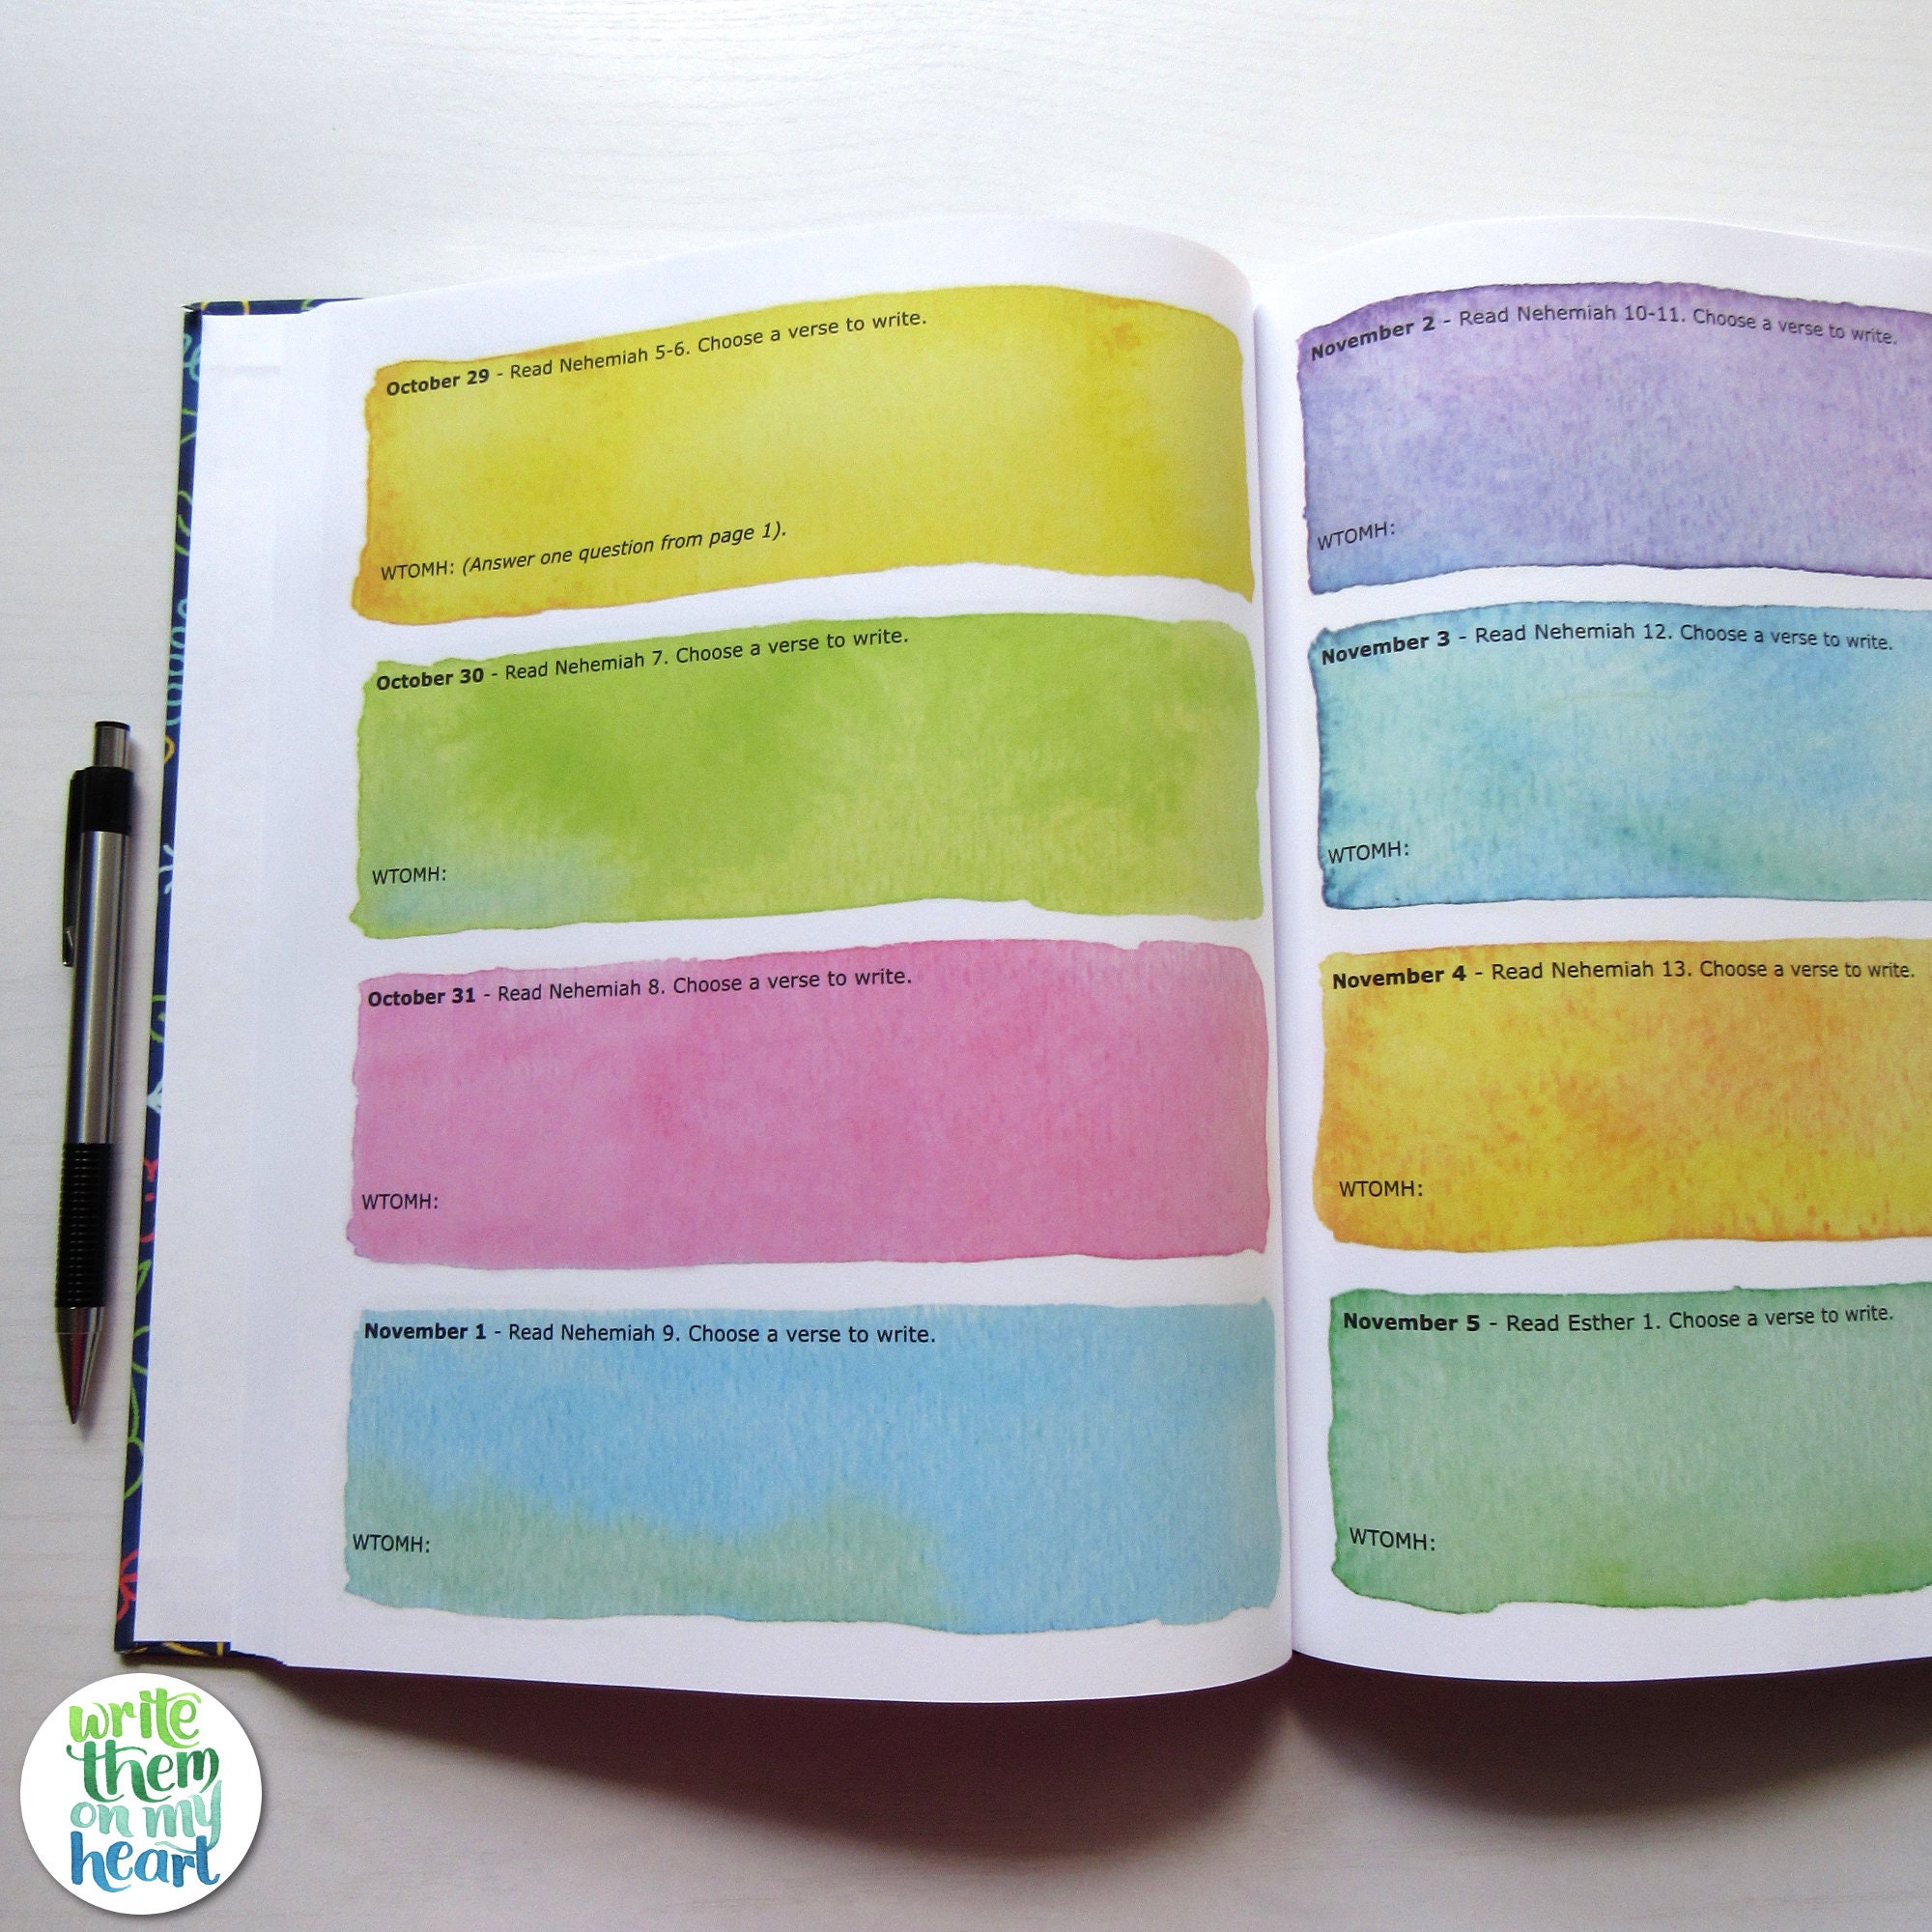 October 29 - Read Nehemiah 5-6. Choose a verse to write.
WTOMH: (Answer one question from page 1).
October 30 - Read Nehemiah 7. Choose a verse to write.
WTOMH:
October 31 - Read Nehemiah 8. Choose a verse to write.
WTOMH:
November 1 - Read Nehemiah 9. Choose a verse to write.
WTOMH:
November 2 - Read Nehemiah 10-11. Choose a verse to write.
WTOMH:
November 3 - Read Nehemiah 12. Choose a verse to write.
WTOMH:
November 4 - Read Nehemiah 13. Choose a verse to write.
WTOMH:
November 5 - Read Esther 1. Choose a verse to write.
WTOMH:
write
them
on my
heart